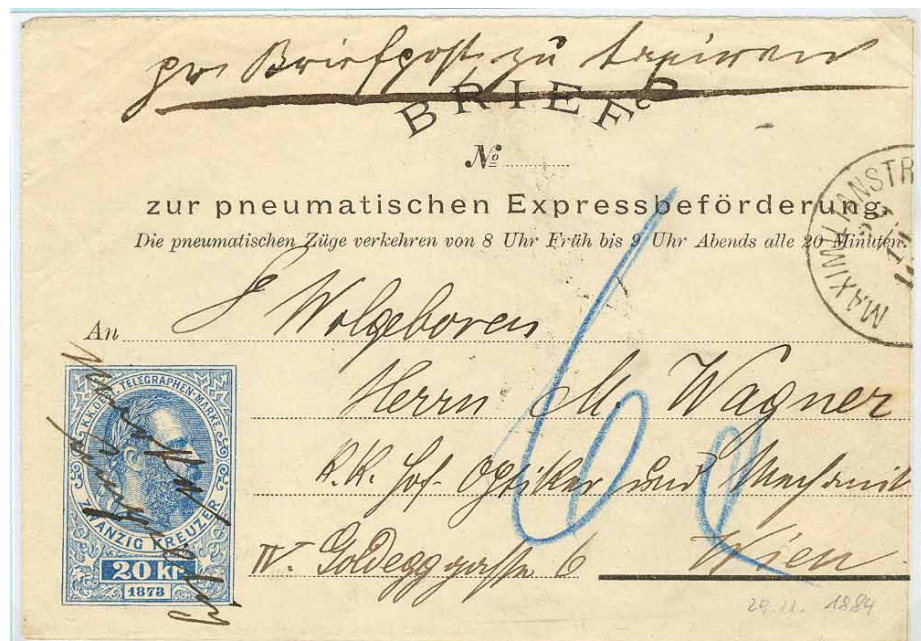 pr Briefpost zu taxiren
BRIEF
№
zur pneumatischen Expressbeförderung.
Die pneumatischen Züge verkehren von 8 Uhr Früh bis 9 Uhr Abends alle 20 Minuten.
MAXIMILIANSTR
An
Wolgeboren
Herrn M. Wagner
K.K. Hof-Optiker und Mechanik
IV. Goldeggasse 6 Wien
K.K. TELEGRAPHEN-MARKE
ZWANZIG KREUZER
20 kr.
1873
29.11. 1884